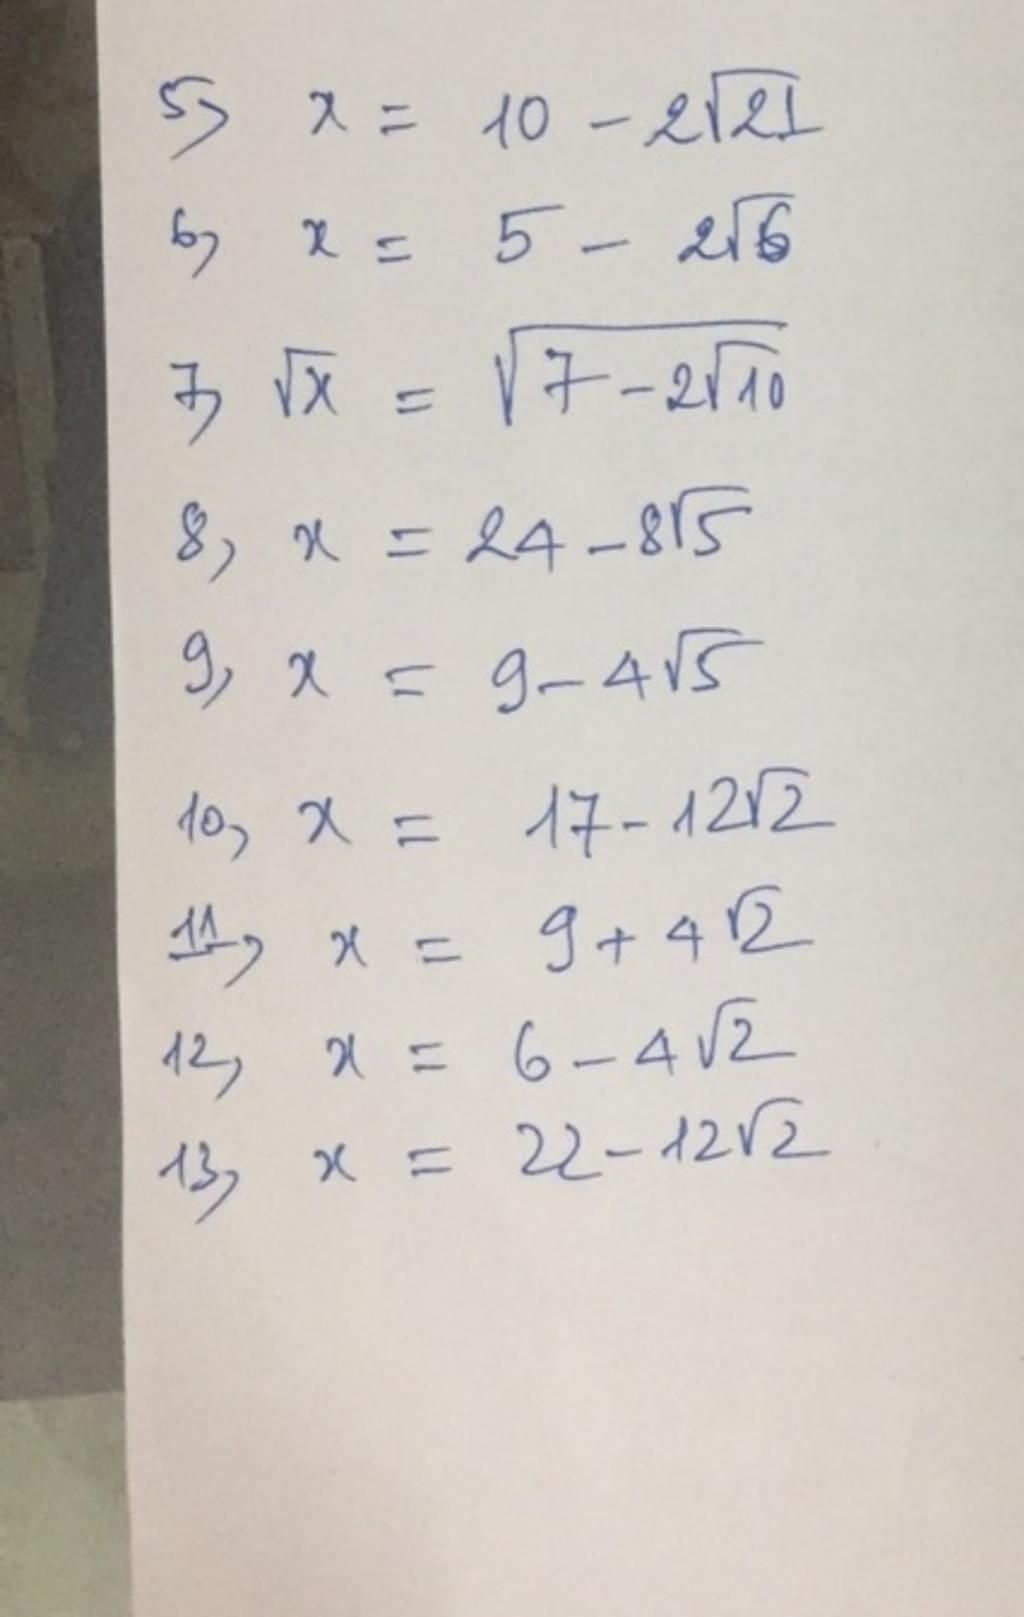 5, x = 10 - 2√21
6, x = 5 - 2√6
7, √x = √(7 - 2√10)
8, x = 24 - 8√5
9, x = 9 - 4√5
10, x = 17 - 12√2
11, x = 9 + 4√2
12, x = 6 - 4√2
13, x = 22 - 12√2